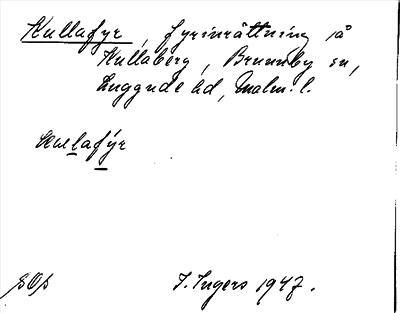 Kullafyr, fyrinrättning på
Kullaberg, Brunnby sn,
Luggude hd, Malm. l.
I. Ingers 1947.